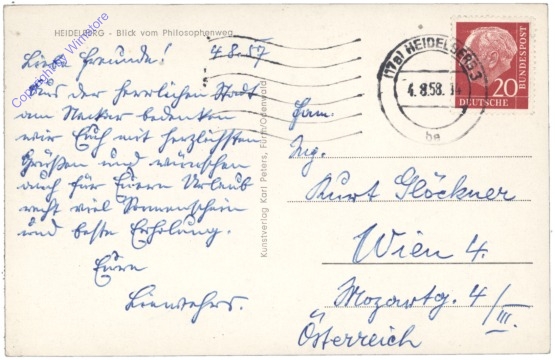 HEIDELBERG - Blick vom Philosophenweg
Liebe Freunde! 4.8.57
Aus der herrlichen Stadt
am Neckar bedenken
wir Euch mit herzlichsten
Grüßen und wünschen
auch für Euren Urlaub
recht viel Sonnenschein
und beste Erholung.
Eure
Kunstverlag Karl Peters, Fürth/Odenwald
(17a) HEIDELBERG 3
4.8.58.
be
20
DEUTSCHE
BUNDESPOST
Fam.
Ing.
Kurt Glöckner
Wien 4.
Mozartg. 4/III.
Österreich